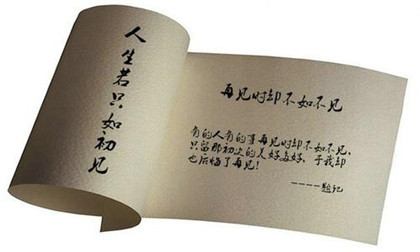 人生若只如初见
再见时却不如不见
有的人有的事再见时却不如不见,
只留那初次的美好多好,于我却
也后悔了再见!
----题记